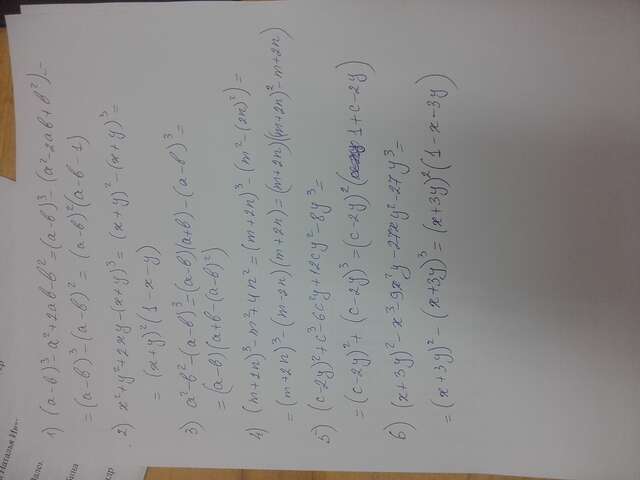 Наталья
1) (a-b)³-a²+2ab-b²=(a-b)³-(a²-2ab+b²)=
=(a-b)³-(a-b)²= (a-b)²(a-b-1)
2) x²+y²+2xy-(x+y)³= (x+y)²-(x+y)³=
= (x+y)²(1-x-y)
3) a²-b²-(a-b)³=(a-b)(a+b)-(a-b)³=
=(a-b)(a+b-(a-b)²)
4) (m+2n)³-m²+4n²=(m+2n)³-(m²-(2n)²)=
=(m+2n)³-(m-2n)(m+2n)=(m+2n)((m+2n)²-m+2n)
5) (c-2y)²+c³-6c²y+12cy²-8y³=
=(c-2y)²+(c-2y)³=(c-2y)²(1+c-2y)
6) (x+3y)²-x³-9x²y-27xy²-27y³=
=(x+3y)²-(x+3y)³=(x+3y)²(1-x-3y)